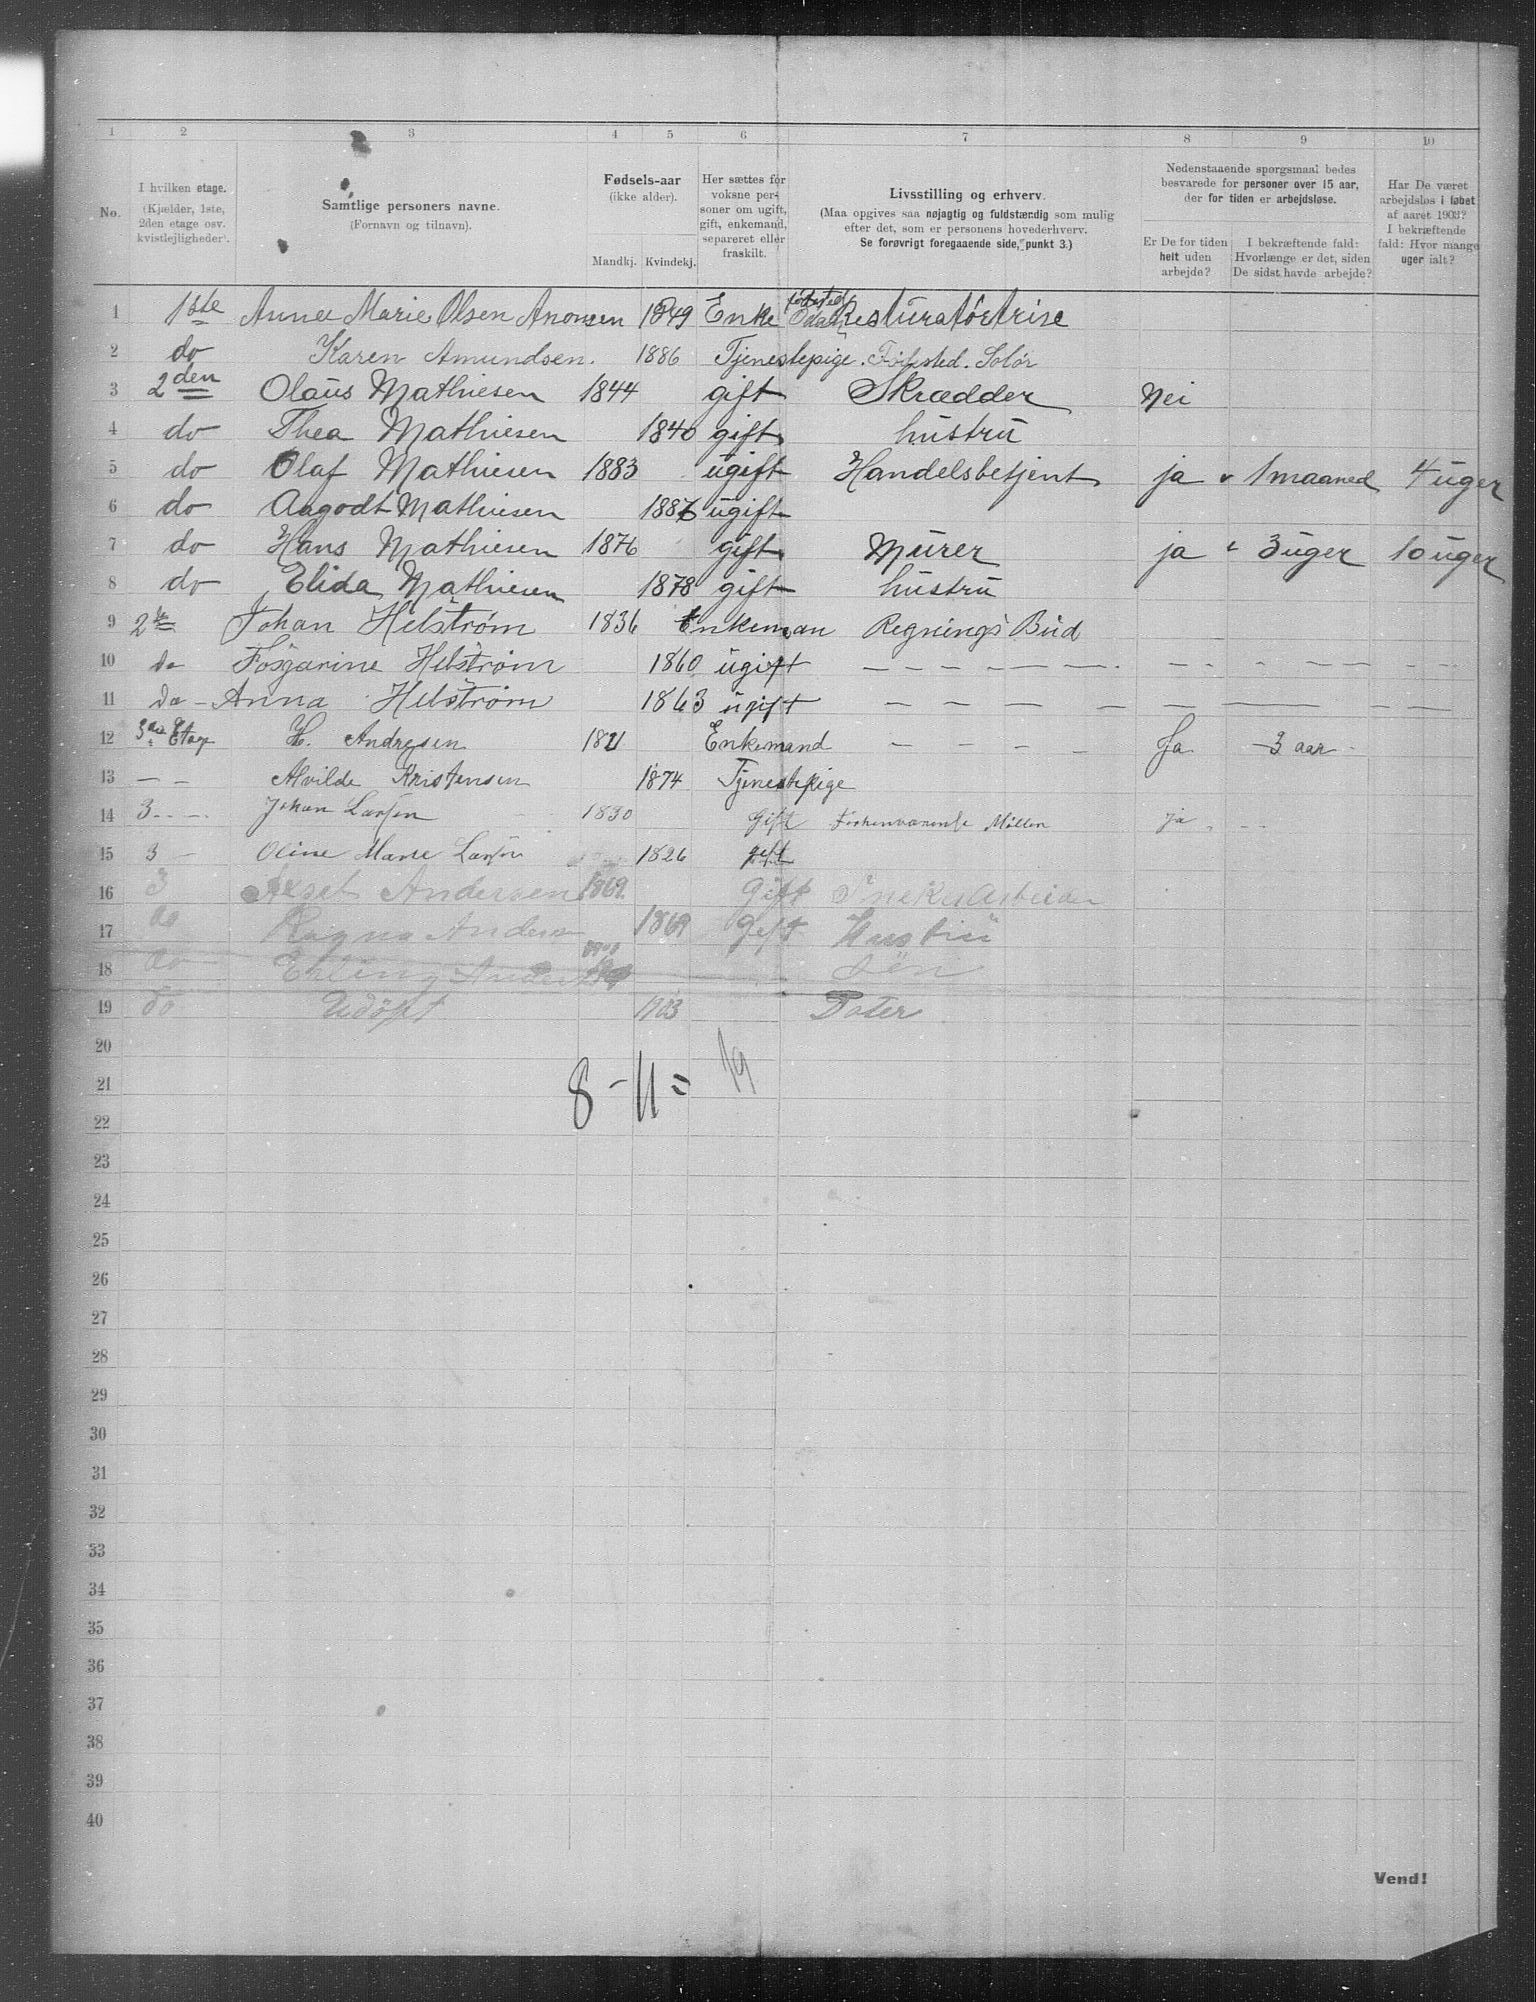 1 2 3 4 5 6 7 8 9 10
No.
I hvilken etage.
(Kjælder, 1ste,
2den etage osv.
kvistlejligheder).
Samtlige personers navne.
(Fornavn og tilnavn).
Fødsels-aar
(ikke alder).
Mandkj. Kvindekj.
Her sættes for
voksne per-
soner om ugift,
gift, enkemand,
separeret eller
fraskilt.
Livsstilling og erhverv.
(Maa opgives saa nøjagtig og fuldstændig som mulig
efter det, som er personens hovederhverv.
Se forøvrigt foregaaende side, punkt 3.)
Nedenstaaende spørgsmaal bedes
besvarede for personer over 15 aar,
der for tiden er arbejdsløse.
Er De for tiden
helt uden
arbejde?
I bekræftende fald:
Hvorlænge er det, siden
De sidst havde arbejde?
Har De været
arbejdsløs i løbet
af aaret 1903?
I bekræftende
fald: Hvor mange
uger ialt?
1 1ste Anne Marie Olsen 1849 Enke Resturatørtrise
2 do Karen Amundsen. 1886 Tjenestepige. Fødested. Solør
3 2den Olaus Mathiesen 1844 gift Skrædder Nei
4 do Thea Mathiesen 1840 gift hustru
5 do Olaf Mathiesen 1883 ugift Handelsbetjent ja 1 maaned 4 uger
6 do Aagodt Mathiesen 1886 ugift
7 do Hans Mathiesen 1876 gift Murer ja 3 uger 10 uger
8 do Elida Mathiesen 1878 gift hustru
9 2 Johan Helstrøm 1836 Enkeman Regnings Bud
10 do Helstrøm 1860 ugift — — — — —
11 do - Anna Helstrøm 1863 ugift — — — — —
12 3die Etage H. Andresen 18 Enkemand — — — — Ja - 3 aar -
13 — — Alvilde Kristensen 1874 Tjenestepige
14 3 - - - Johan Larsen 1830 Gift Møller ja - - -
15 3 - Oline Marie Larsen 1826 gift
16 3 Aksel Andersen 1869 Gift
17 do Ragna Andersen 1869 Gift Hustru
18 do Erling Ander Søn
19 do Udöpt 1903 Dater
20
21
22
8 - 11 = 19
23
24
25
26
27
28
29
30
31
32
33
34
35
36
37
38
39
40
Vend!